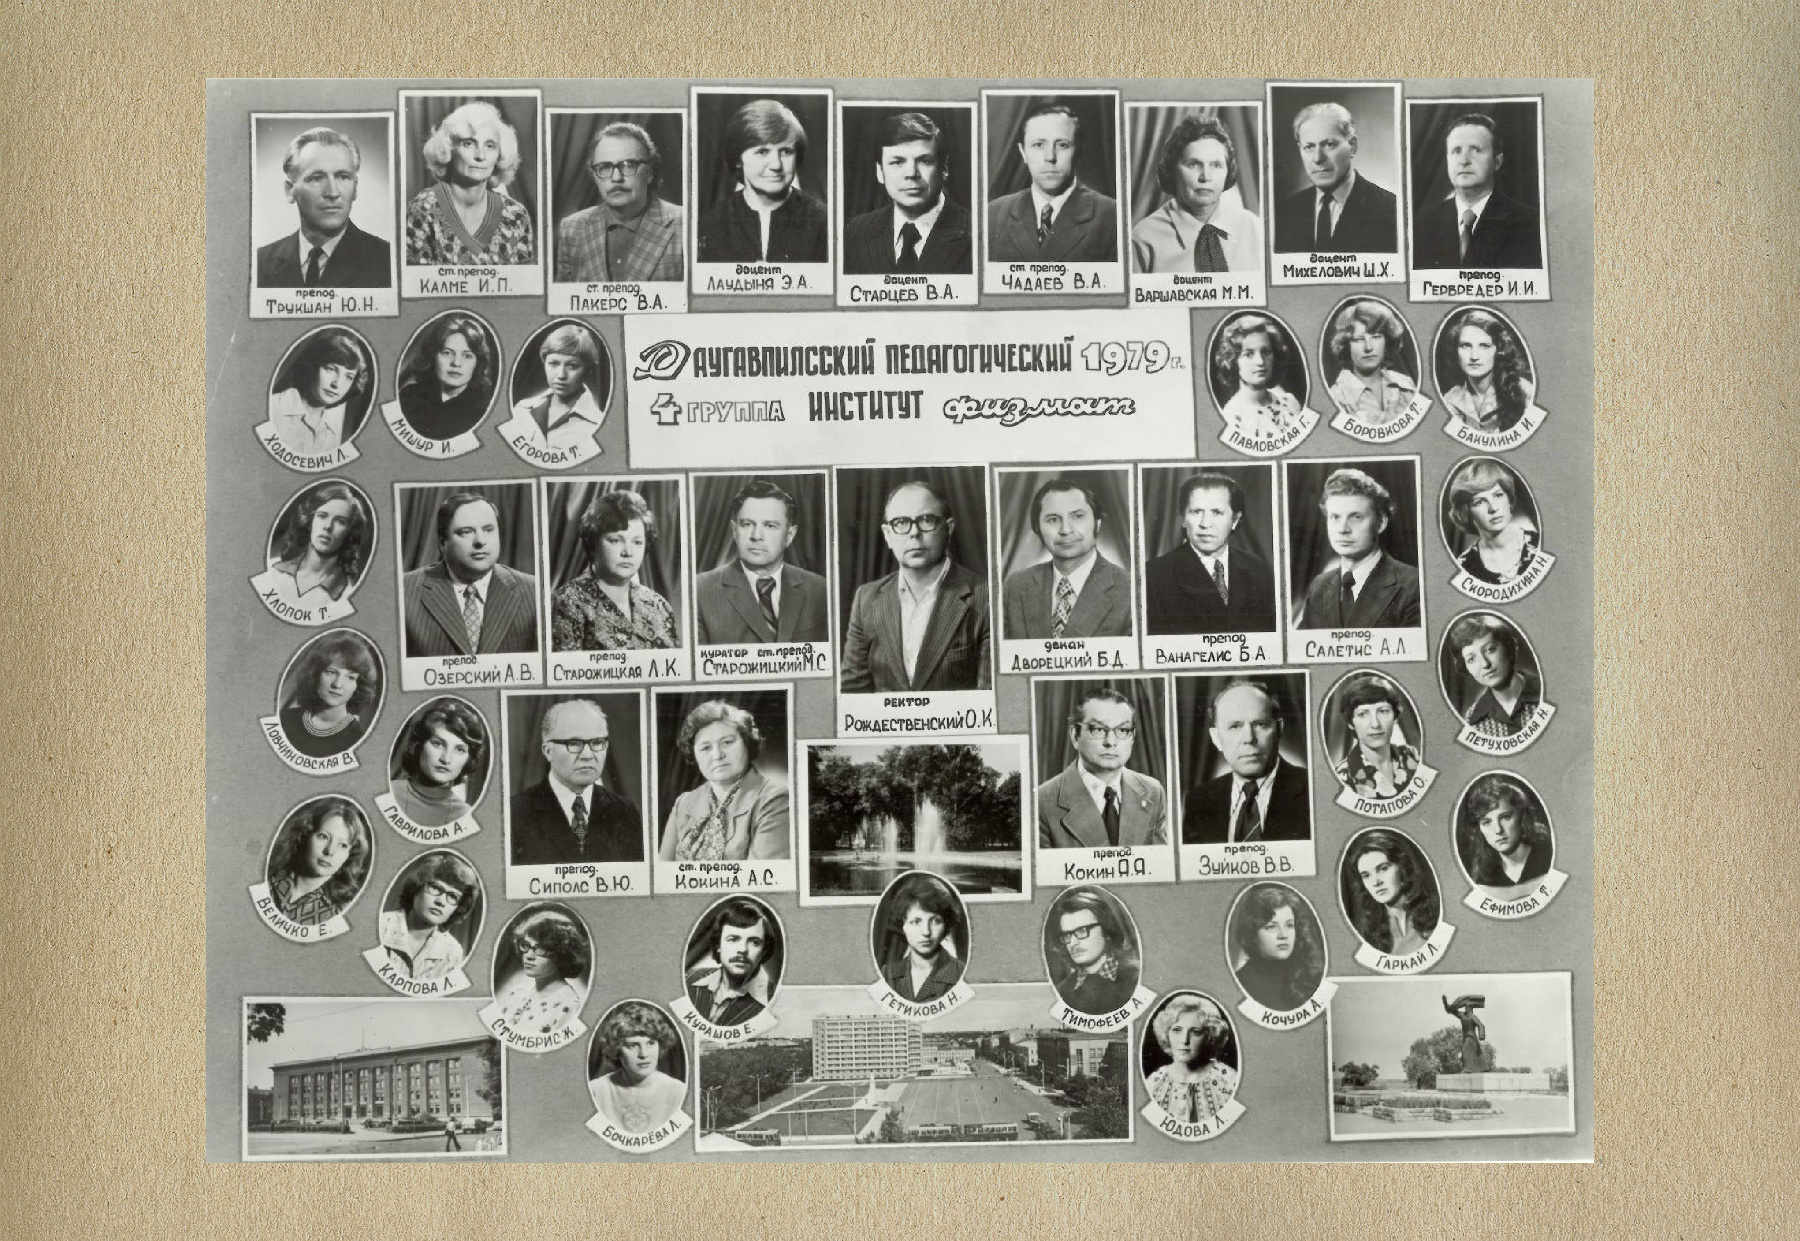 препод.
Трукшан Ю.Н.
ст. препод.
Калме И.П.
ст. препод.
Пакерс В.А.
доцент
Лаудыня Э.А.
доцент
Старцев В.А.
ст. препод.
Чадаев В.А.
доцент
Варшавская М.М.
доцент
Михелович Ш.Х.
препод.
Гервредер И.И.
Ходосевич Л.
Мишур И.
Егорова Т.
Даугавпилсский педагогический 1979 г.
4 группа институт физмат
Павловская Г.
Боровкова Т.
Бакулина И.
Хлопок Т.
препод.
Озерский А.В.
препод.
Старожицкая Л.К.
куратор ст. препод.
Старожицкий М.С.
ректор
Рождественский О.К.
декан
Дворецкий Б.Д.
препод
Ванагелис Б.А.
препод.
Салетис А.Л.
Скородихина Н.
Ловчиновская В.
Гаврилова А.
препод.
Сиполс В.Ю.
ст. препод.
Кокина А.С.
препод.
Кокин Я.Я.
препод.
Зуйков В.В.
Потапова О.
Петуховская Н.
Величко Е.
Карпова Л.
Стумбрис Ж.
Курашов Е.
Гетикова Н.
Тимофеев А.
Кочура А.
Гаркай Л.
Ефимова Т.
Бочкарёва Л.
Юдова Л.